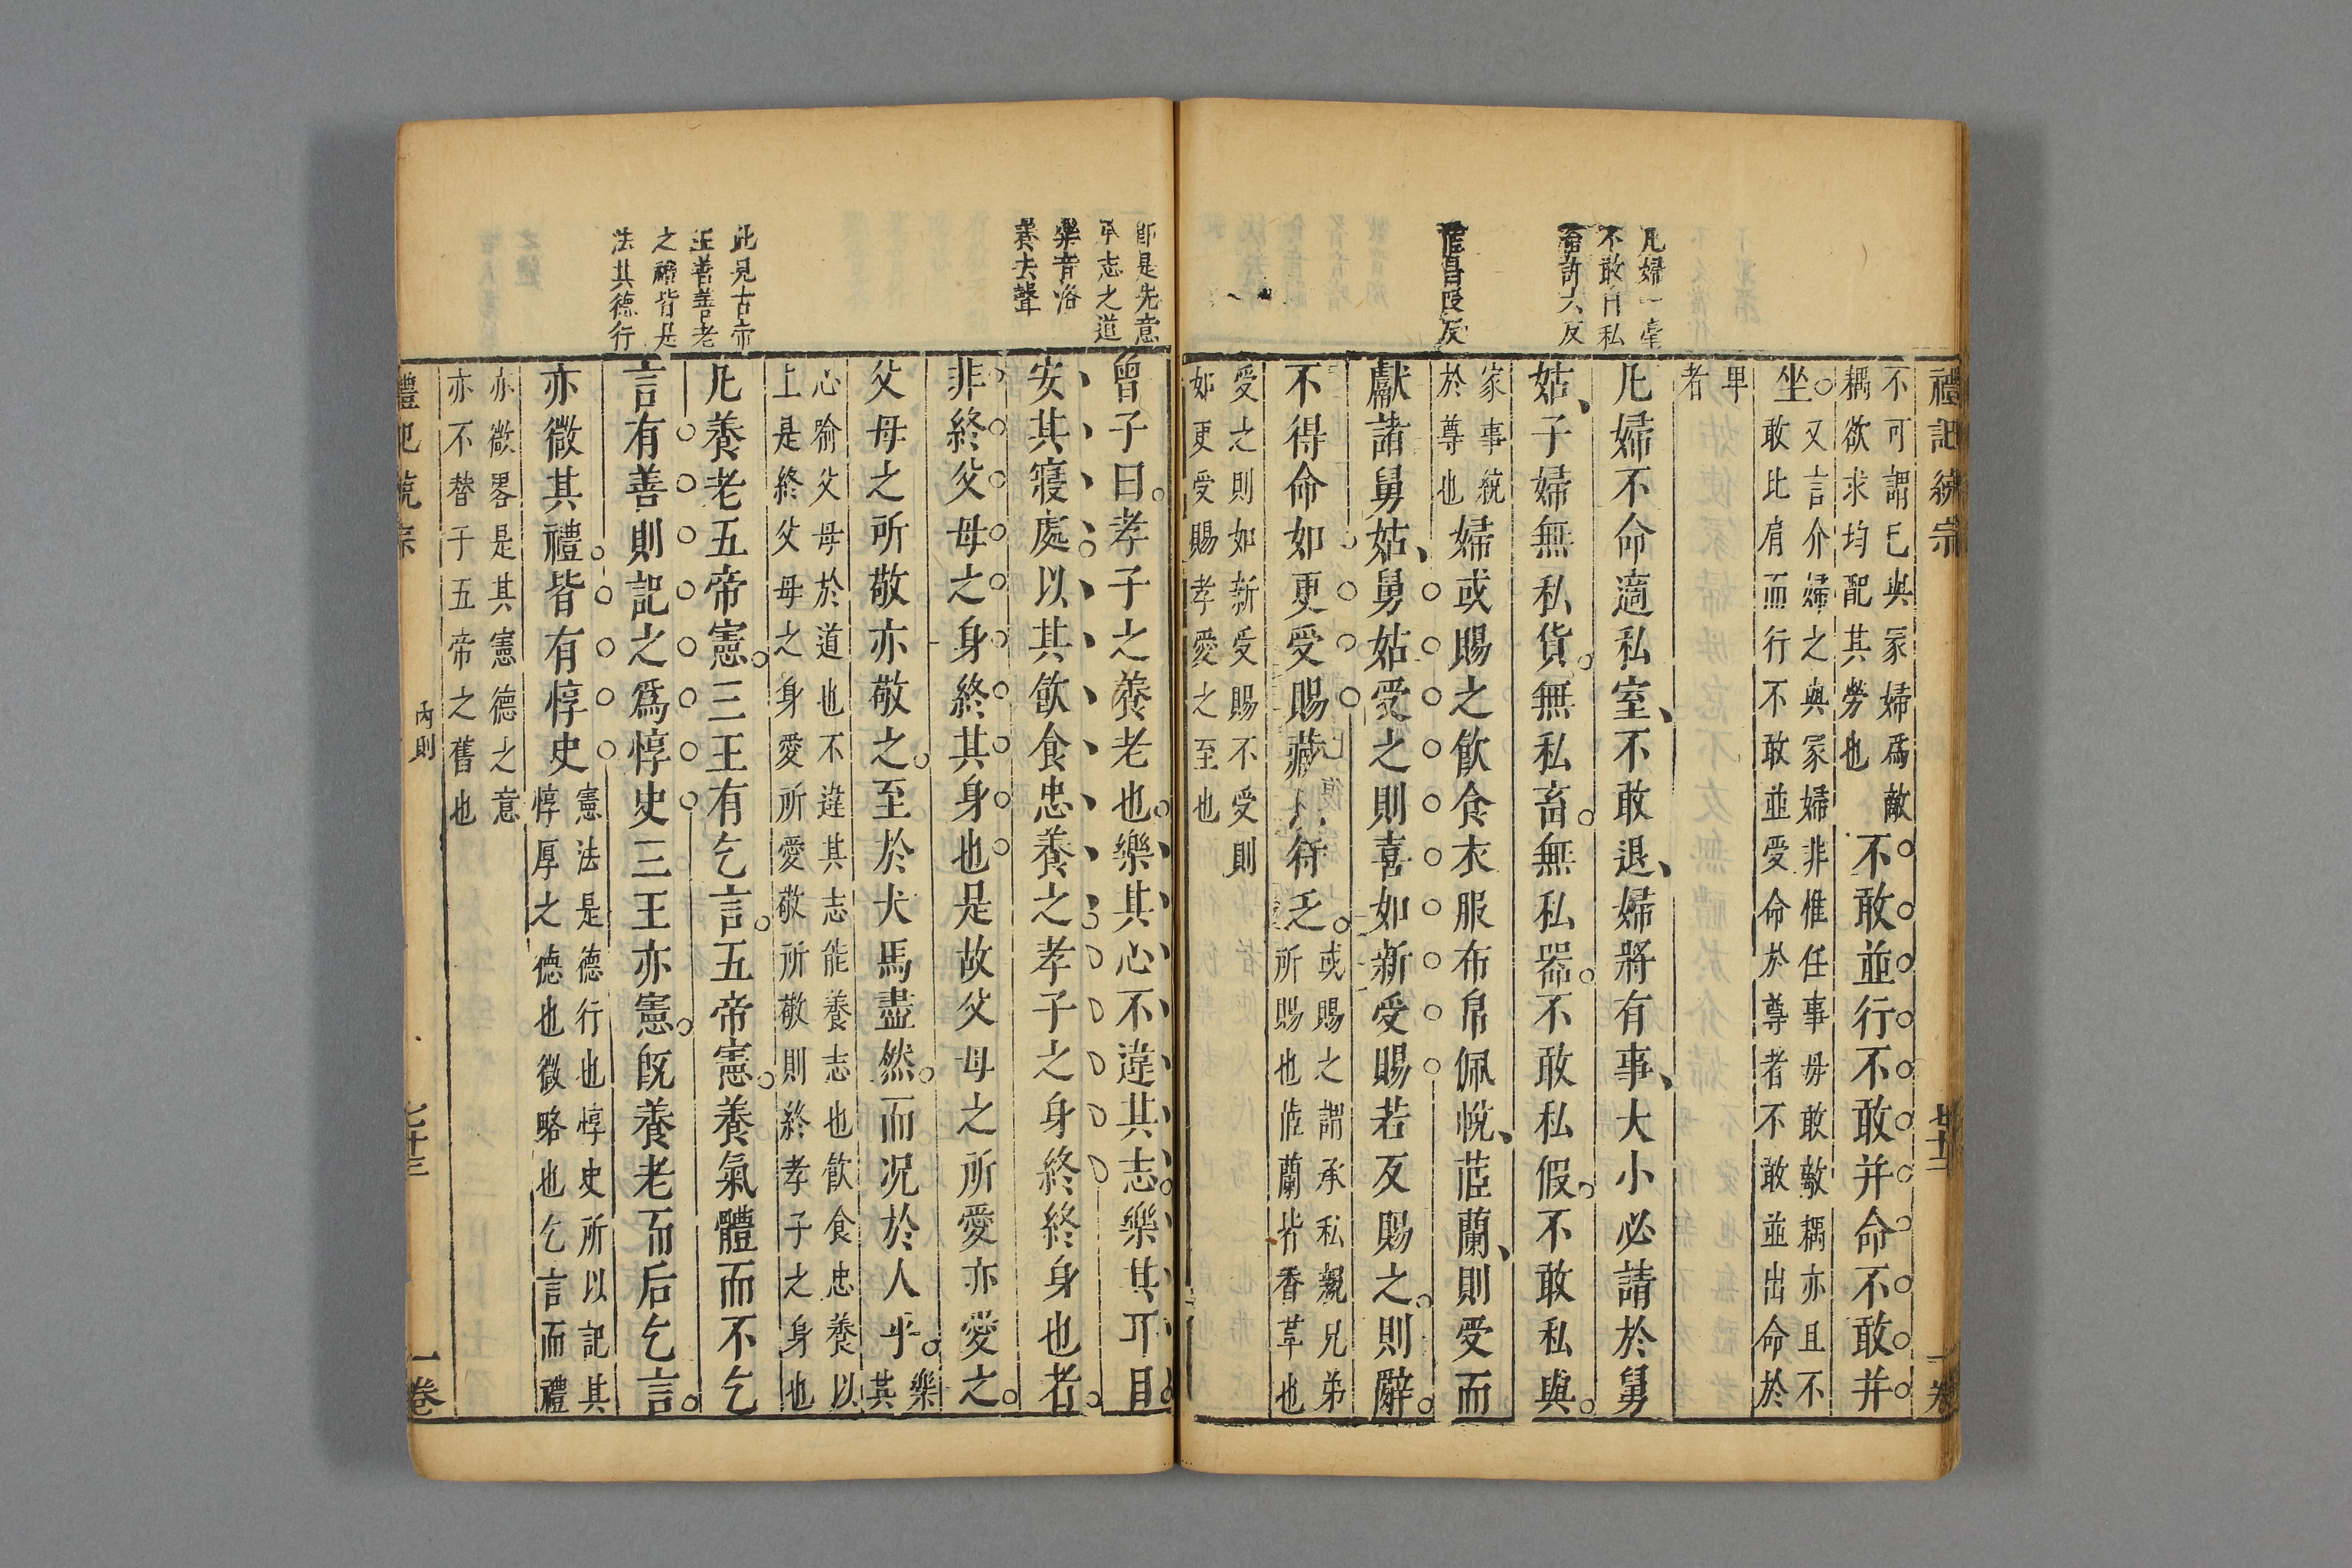 禮記統宗
七十二
一卷
凡婦一毫
不敢自私
畜許六反
茝昌改反
不可謂已與冢婦爲敵
耦欲求均配其勞也
不敢並行不敢并命不敢并
坐
又言介婦之與冢婦非惟任事毋敢敵耦亦且不
敢比肩而行不敢並受命於尊者不敢並出命於
卑
者
凡婦不命適私室不敢退婦將有事大小必請於舅
姑子婦無私貨無私畜無私器不敢私假不敢私與
家事統
於尊也
婦或賜之飲食衣服布帛佩帨茝蘭則受而
獻諸舅姑舅姑受之則喜如新受賜若反賜之則辭
不得命如更受賜藏以待乏
或賜之謂承私親兄弟
所賜也茝蘭皆香草也
愛之則如新受賜不受則
如更受賜孝愛之至也
即是先意
承志之道
樂音洛
養去聲
此見古帝
王養老
之禮皆是
法其德行
曾子曰孝子之養老也樂其心不違其志樂其耳目
安其寢處以其飲食忠養之孝子之身終終身也者
非終父母之身終其身也是故父母之所愛亦愛之
父母之所敬亦敬之至於犬馬盡然而况於人乎
樂
其
心喻父母於道也不違其志能養志也飲食忠養以
上是終父母之身愛所愛敬所敬則終孝子之身也
凡養老五帝憲三王有乞言五帝憲養氣體而不乞
言有善則記之爲惇史三王亦憲既養老而后乞言
亦微其禮皆有惇史
憲法是德行也惇史所以記其
惇厚之德也微略也乞言而禮
亦微畧是其憲德之意
亦不替于五帝之舊也
禮記統宗
內則
七十三
一卷